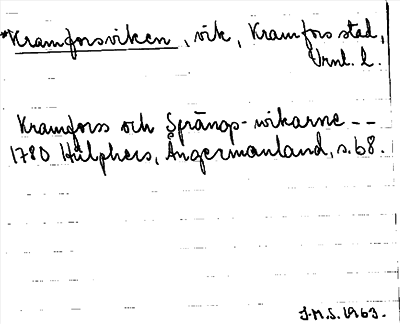 *Kramforsviken, vik, Kramfors stad,
Vrml. l.
Kramforss och Sprängs-wikarne --
1780 Hülphers, Ångermanland, s. 68.
J.N.S. 1963.